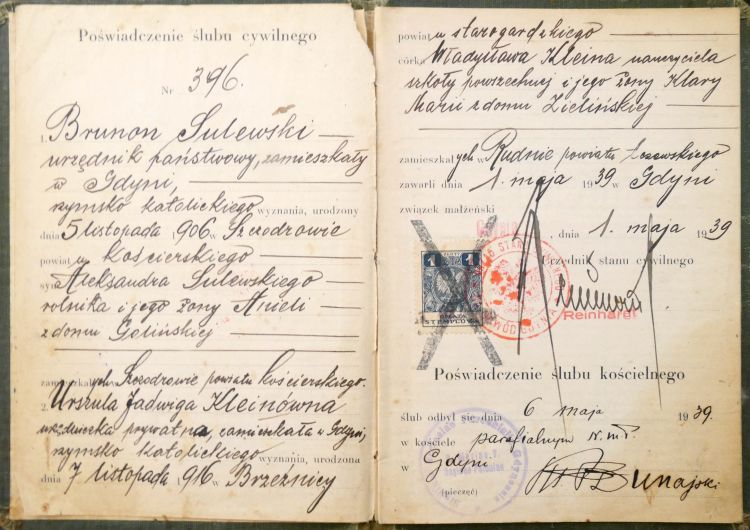 Poświadczenie ślubu cywilnego
Nr 396.
1. Brunon Sulewski
urzędnik państwowy, zamieszkały
w Gdyni,
rzymsko katolickiego wyznania, urodzony
dnia 5 listopada 1906 w Szczodrowie
powiat w kościerskiego
syn Aleksandra Sulewskiego
rolnika i jego żony Anieli
z domu Gelińskiej
zamieszkałych w Szczodrowie powiatu kościerskiego.
2. Urszula Jadwiga Kleinówna
urzędniczka prywatna, zamieszkała w Gdyni,
rzymsko katolickiego
wyznania, urodzona
dnia 7 listopada 1916 w Brzeźnicy
powiat w starogardzkiego
córka Władysława Kleina nauczyciela
szkoły powszechnej i jego żony Klary
Marii z domu Zielińskiej
zamieszkałych w Rudnie powiatu tczewskiego
zawarli dnia 1. maja 1939 w Gdyni
związek małżeński
Gdynia, dnia 1. maja 1939
Urzędnik stanu cywilnego
1 1
STEMPLOWA
Reinhardt
Poświadczenie ślubu kościelnego
ślub odbył się dnia 6 maja 1939.
w kościele parafialnym N. M. P.
w Gdyni
(pieczęć)